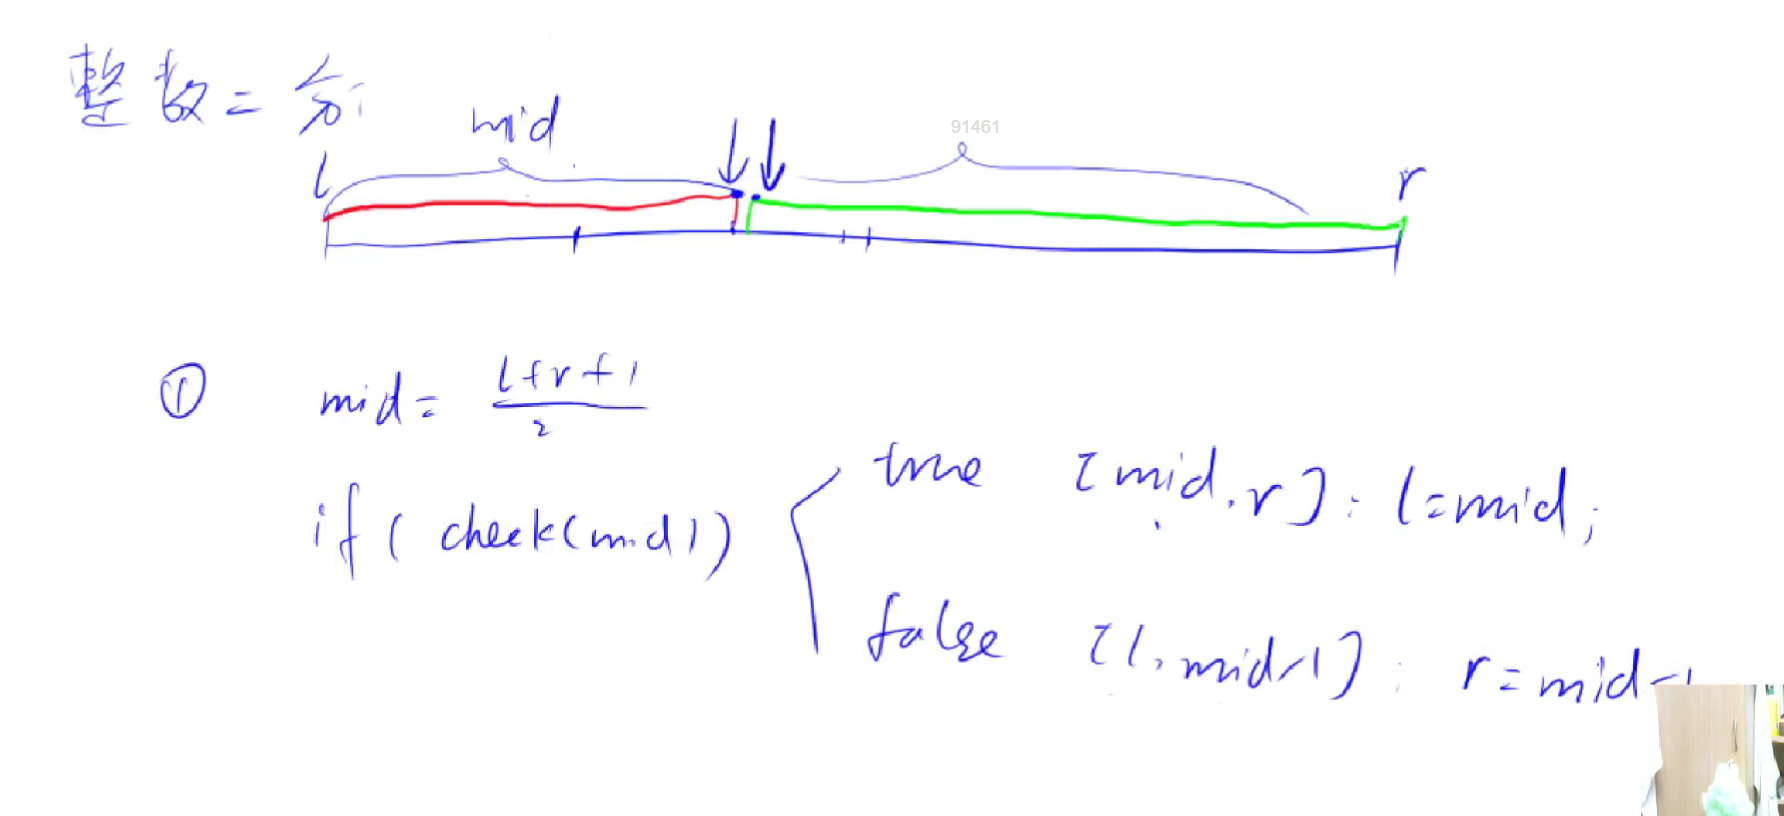 整数二分
mid
91461
l
r
① mid = (l+r+1)/2
if ( check(mid) )
true [mid, r] : l=mid;
false [l, mid-1] : r=mid-1